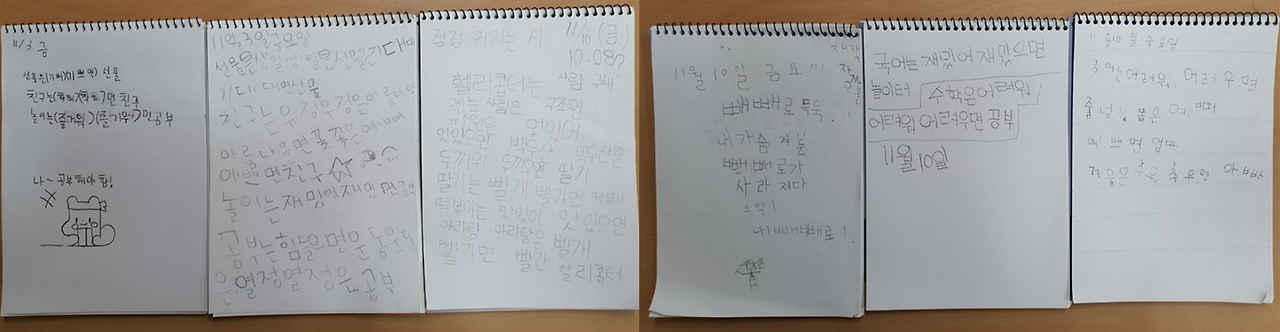 11/3 금
선물은(기뻐)(기쁘면) 선물
친구는
면 친구
놀이는(즐거워)(즐거우)면 공부
나~ 공부해야 함!
11월 3일 금요일
선물은
선물은 기대돼
기대 대면 선물
친구는 우정 우정은 아름다워
아르다우면 꽃 꽃은 예뻐
예쁘면 친구
놀이는 재밌어 재밌으면 공부
공부는 힘들 은면 운동 운동
은 열정 열정은 공부
점점 커지는 시
11/10 (금)
10:08?
헬리콥터는 사람 구해
구하는 사람은 구조원
구조원은 멋있어
멋있으면 백두산 백두산은
두꺼워 두꺼우면 딸기
딸기는 빨개 빨가면 떡볶이
떡볶이는 맛있어 맛있으면
마라탕 마라탕은 빨개
빨가면 빨간
헬리콥터
11월 10일 금요일
빼빼로 뚝뚝
내 가슴
빼빼로가
사라저다
으악!
내 빼빼로!
국어는 재밌어 재밌으면
놀이터 수학은 어려워
어려워 어려우면 공부
11월 10일
11월 10일 금요일
국어는 어려워, 어려우면
줄넘기, 줄넘기은 예뻐
예쁘면 엄마
겨울은 추워, 추우면 아빠